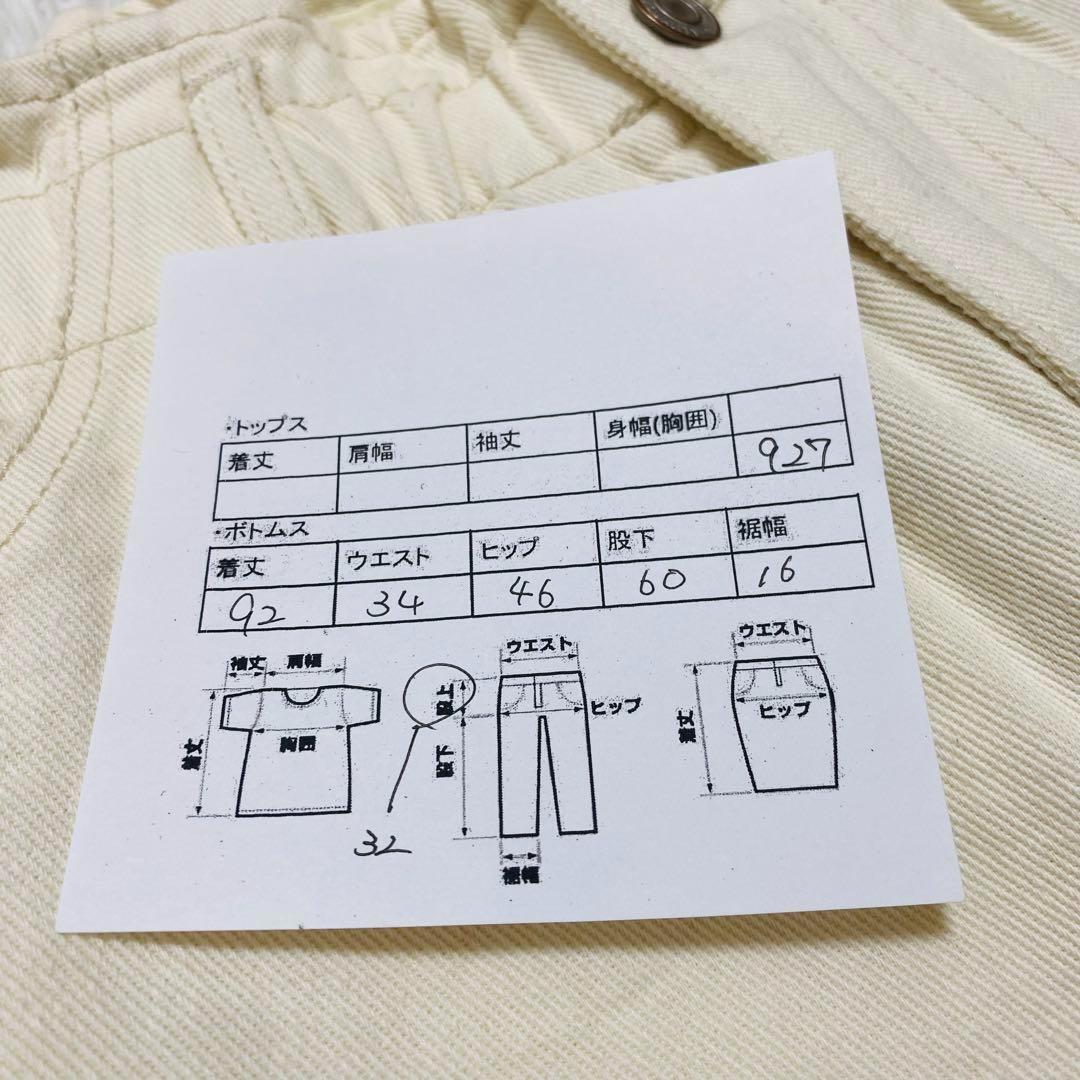 ・トップス
着丈 肩幅 袖丈 身幅(胸囲)
927
・ボトムス
着丈 ウエスト ヒップ 股下 裾幅
92 34 46 60 16
袖丈 肩幅
着丈
胸囲
股上
股下
32
ウエスト
ヒップ
裾幅
ウエスト
着丈
ヒップ